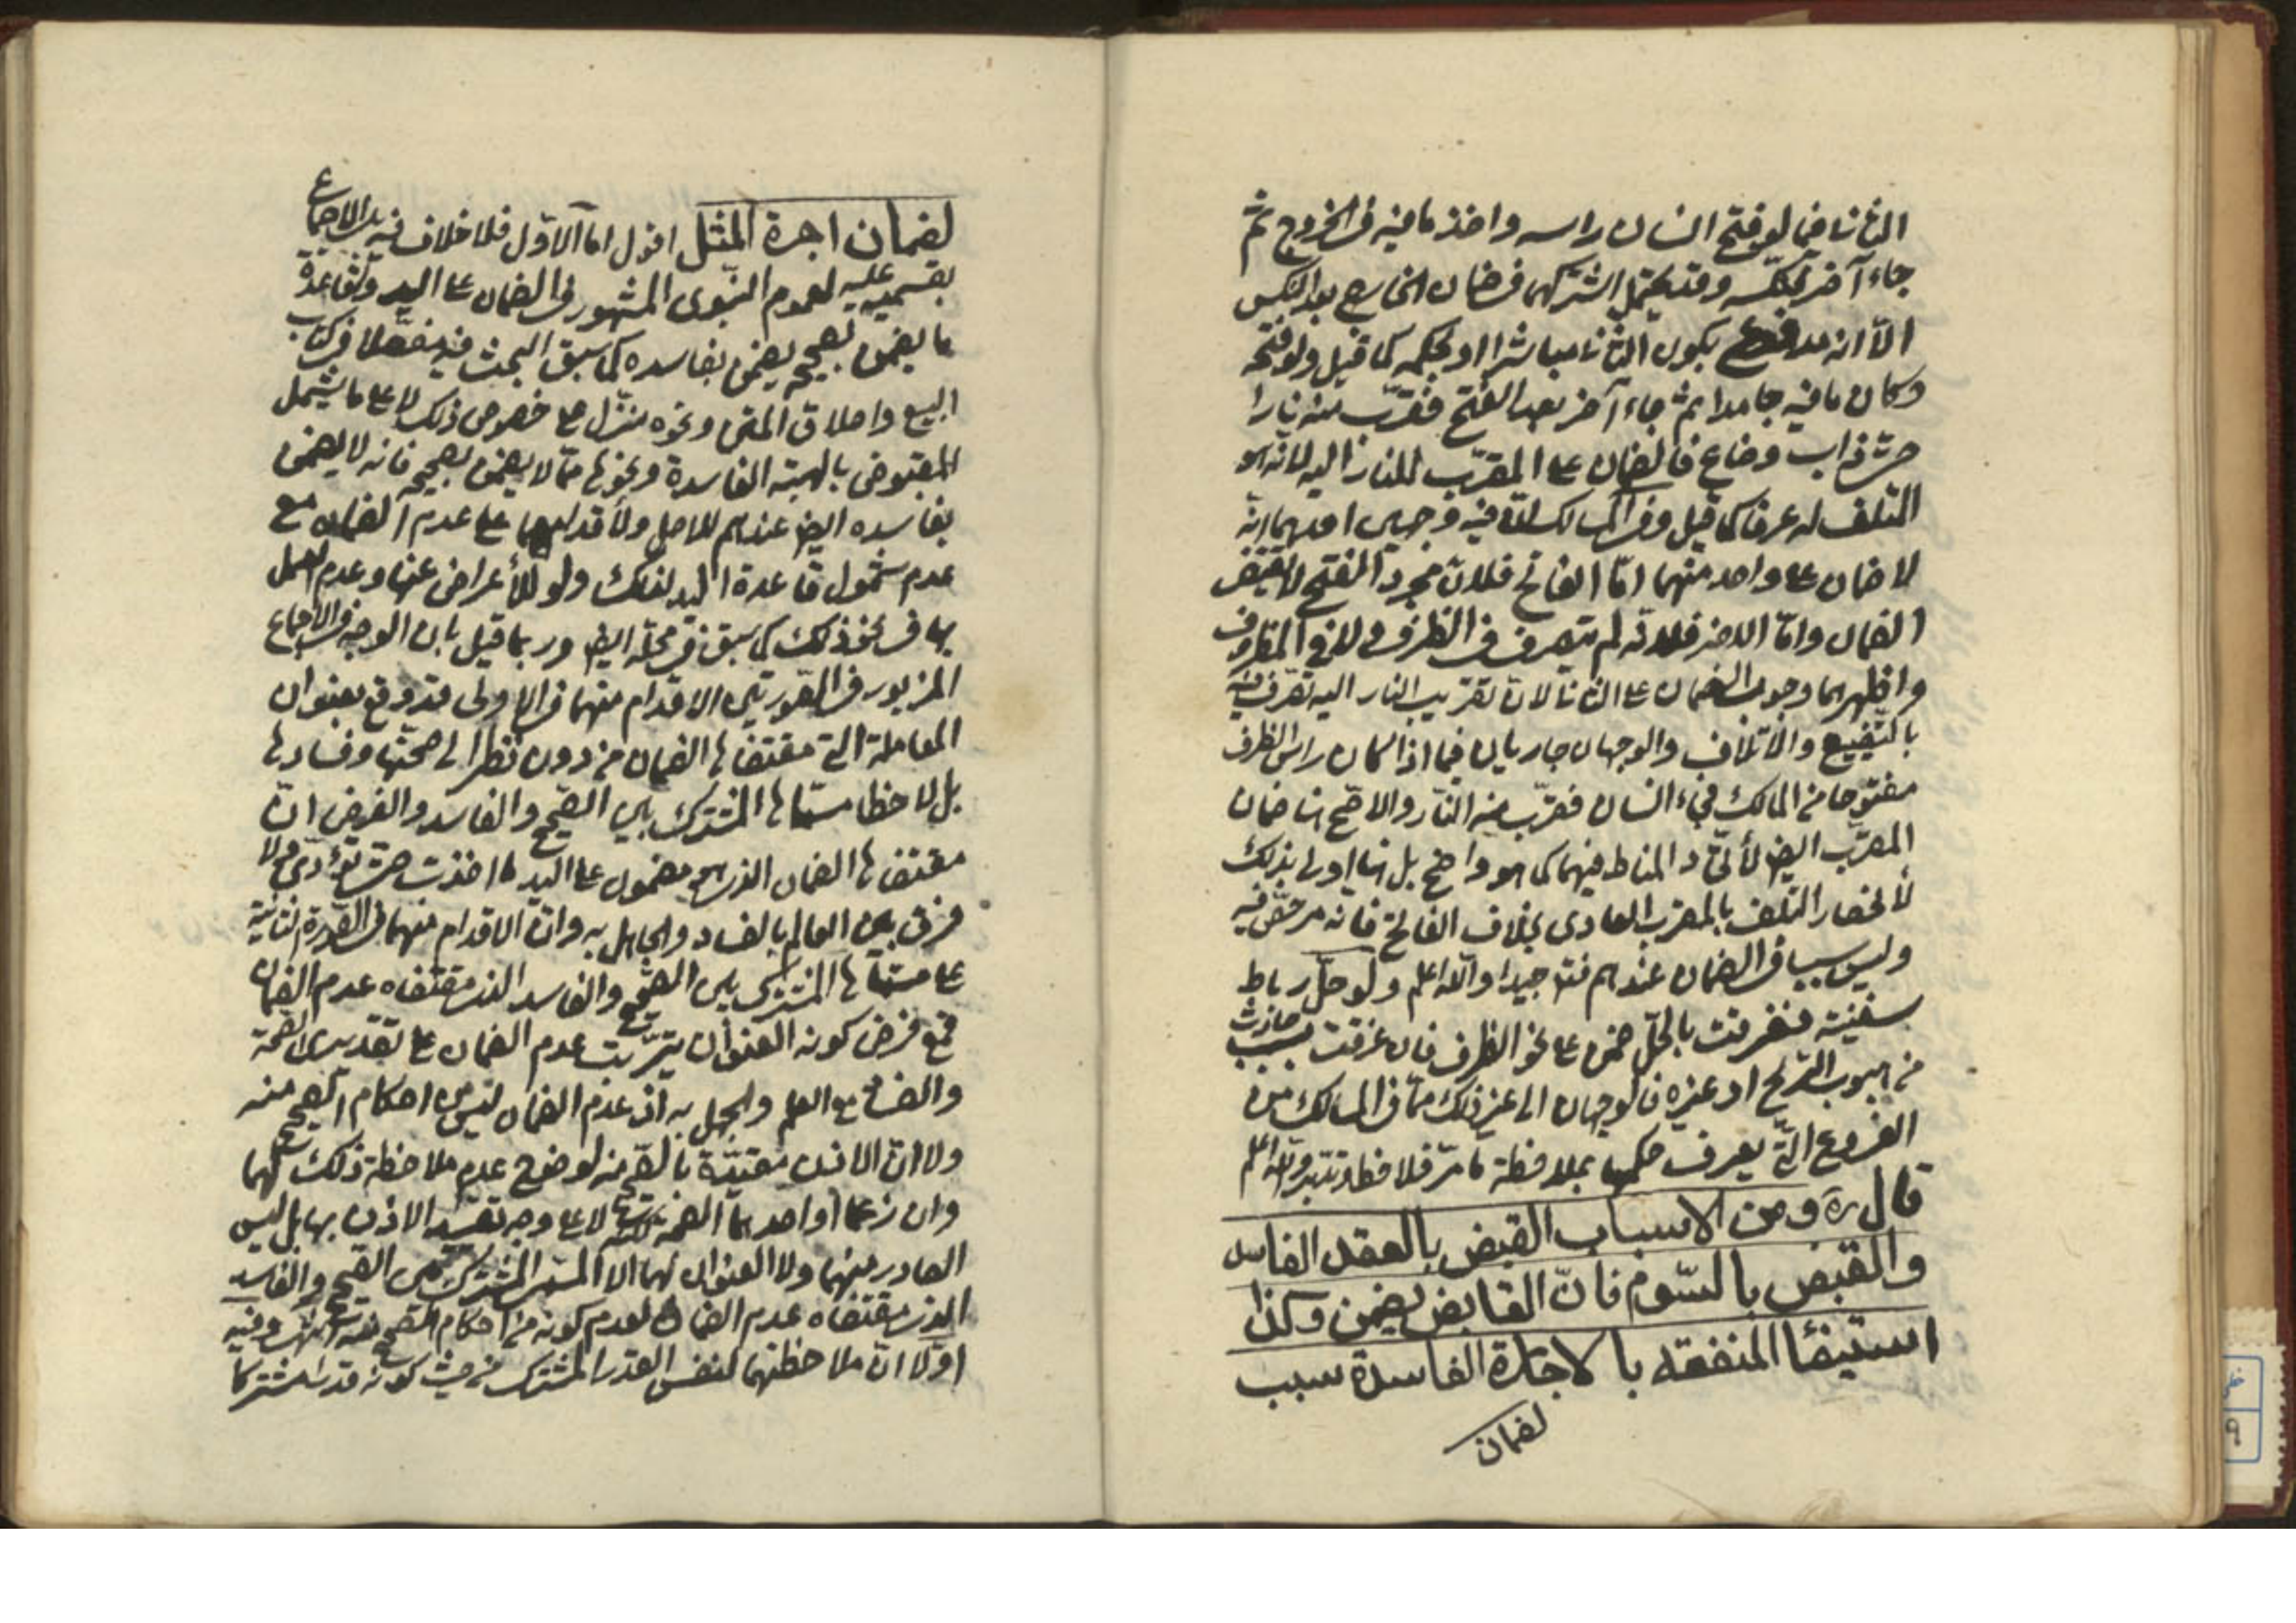 الثاني فيما لو فتح انسان راسه واخذ ما فيه في الخروج ثم
جاء آخر نكسه وقد يحتمل اشتراكهما في ضمان الخارج بعد النكس
الا انه مدفوع بكون الثاني مباشرا او بحكمه كما قيل ولو فتحه
وكان ما فيه جامدا ثم جاء آخر بعد الفتح فقرّب منه نارا
حتى ذاب وضاع فالضمان على المقرّب للنار اليه لانه هو
المتلف له عرفا كما قيل وفي المسالك فيه وجهين احدهما انه
لا ضمان على واحد منهما امّا الفاتح فلان مجرد الفتح لا يقتضي
الضمان وامّا الاخر فلانه لم يتصرف في الظرف ولا في المظروف
واظهرهما وجوب الضمان على الثاني لان تقريب النار اليه تصرف فيه
بالتضييع والاتلاف والوجهان جاريان فيما اذا كان راس الظرف
مفتوحا من المالك فجاء انسان فقرّب منه النار والاصح هنا ضمان
المقرّب ايضا لاتحاد المناط فيهما كما هو واضح بل هنا اولى بذلك
لانحصار التلف بالمقرب العادي بخلاف الفاتح فانه مرخص فيه
وليس سببا في الضمان عندهم فتدبر جيدا والله اعلم ولو حلّ رباط
سفينة فغرقت بالحلّ ضمن على نحو الظرف فان غرقت بسبب حادث
من هبوب الريح او غيره فالوجهان الى غير ذلك ممّا في المسالك من
الفروع التي يعرف حكمها بملاحظة ما مرّ فلاحظ وتدبر والله اعلم
قال ره ومن الاسباب القبض بالعقد الفاسد
والقبض بالسّوم فانّ القابض يضمن وكذا
استيفاء المنفعه بالاجارة الفاسدة سبب
لضمان
لضمان اجرة المثل اقول اما الاول فلا خلاف فيه بل الاجماع
بقسميه عليه لعموم النبوى المشهور في الضمان على اليد ولقاعدة
ما يضمن بصحيحه يضمن بفاسده كما سبق البحث فيه مفصلا في كتاب
البيع واطلاق المتن ونحوه منزّل على خصوص ذلك لا على ما يشمل
المقبوض بالهبة الفاسدة ونحوها ممّا لا يضمن بصحيحه فانه لا يضمن
بفاسده ايضا عندهم للاصل ولاقدامهما على عدم الضمان مع
عدم شمول قاعدة اليد لذلك ولو للأعراض عنها وعدم العمل
بها في نحو ذلك كما سبق في محله ايضا وربما قيل بان الوجه في الاجماع
المزبور في الصورتين الاقدام منهما في الاولى قد وقع بعنوان
المعاملة التي مقتضاها الضمان من دون نظر الى صحتها وفسادها
بل لاحظا مسمّاها المشترك بين الصحيح والفاسد والفرض انّ
مقتضاها الضمان الذى هو مضمون على اليد ما اخذت حتى تؤدّي ولا
فرق بين العالم بالفساد والجاهل به وانّ الاقدام منهما في الصورة الثانية
على مسمّاها المشترك بين الصحيح والفاسد الذى مقتضاه عدم الضمان
فمع فرض كونه العنوان يترتّب عدم الضمان على تقديرى الصحة
والفساد مع العلم والجهل به اذ عدم الضمان ليس من احكام الصحيح منه
ولا انّ الاذن مقيّدة بالصحة منه لوضوح عدم ملاحظة ذلك لهما
وان زعما او احدهما الصحة لا على وجه تقييد الاذن بها بل ليس
الصادر منهما ولا العنوان لهما الا المسمى المشترك بين الصحيح والفاسد
الذى مقتضاه عدم الضمان لعدم كونه من احكام الصحيح انتهى وفيه
اولا انّ ملاحظتهما لنفس القدر المشترك من حيث كونه قدرا مشتركا